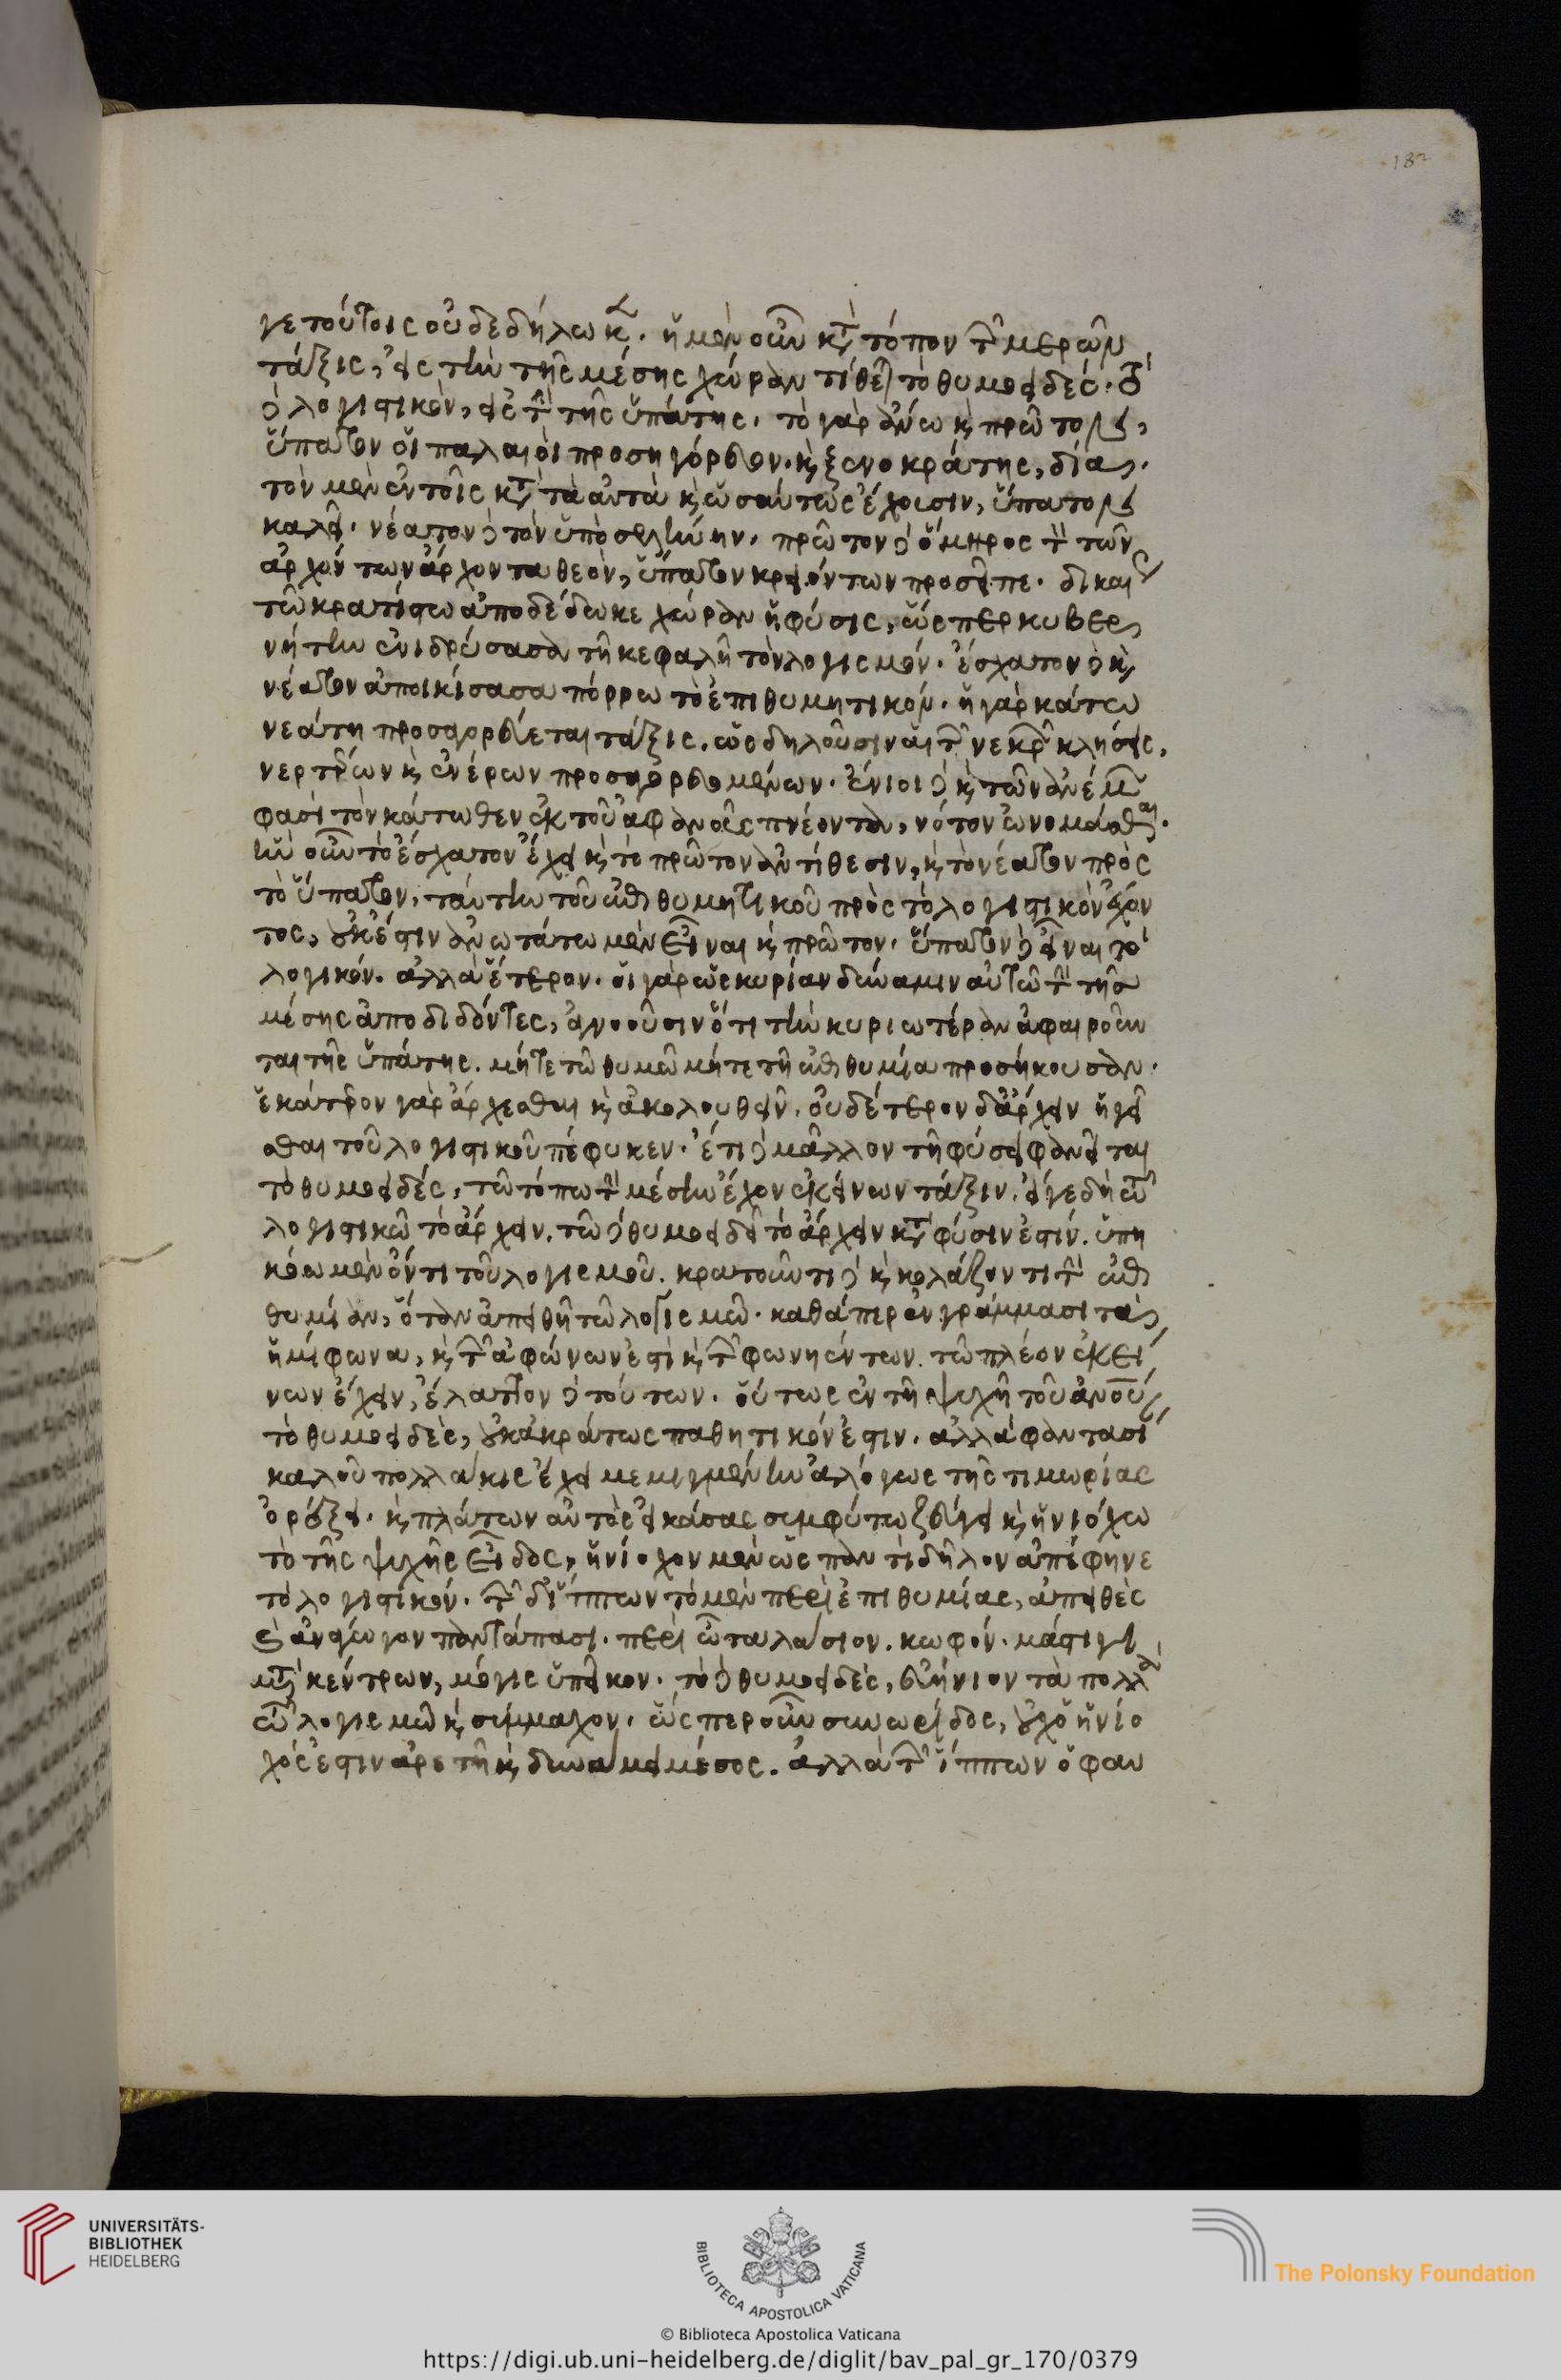 187
γε τούτοις οὐ δεδήλωκεν. ἡ μὲν οὖν κατὰ τόπον τῶν μερῶν
τάξις, εἰς τὴν τῆς μέσης χώραν τίθεται τὸ θυμοειδές. τὸ
δὲ λογιστικὸν, εἰς τὴν τῆς ὑπάτης. τὸ γὰρ ἄνω καὶ πρῶτον,
ὕπατον οἱ παλαιοὶ προσηγόρευον. καὶ ξενοκράτης, δία
τὸν μὲν ἐν τοῖς κατὰ τὰ αὐτὰ καὶ ὡσαύτως ἔχουσιν, ὕπατον
καλεῖ. νέατον δὲ τὸν ὑπὸ σελήνην. πρῶτον δὲ ὅμηρος τὸν τῶν
ἀρχόντων ἄρχοντα θεὸν, ὕπατον κρειόντων προσεῖπε. δικαίως
τῶ κρατίστω ἀποδέδωκε χώραν ἡ φύσις, ὥσπερ κυβερ
νήτην ἐνιδρύσασα τῆ κεφαλῆ τὸν λογισμόν. ἔσχατον δὲ καὶ
νέατον ἀποικίσασα πόρρω τὸ ἐπιθυμητικόν. ἡ γὰρ κάτω
νεάτη προσαγορεύεται τάξις. ὡς δηλοῦσιν αἱ τῶν νεκρῶν κλήσεις,
νερτέρων καὶ ἐνέρων προσαγορευομένων. ἔνιοι δὲ καὶ τῶν ἀνέμων
φασὶ τὸν κάτωθεν ἐκ τοῦ ἀφανοῦς πνέοντα, νότον ὠνομάσθαι.
ἣν οὖν τὸ ἔσχατον ἔχει καὶ τὸ πρῶτον ἀντίθεσιν, καὶ τὸ νέατον πρὸς
τὸ ὕπατον, ταύτην τοῦ ἐπιθυμητικοῦ πρὸς τὸ λογιστικὸν ἔχον
τος, οὐκ ἔστιν ἀνωτάτω μὲν εἶναι καὶ πρῶτον. ὕπατον δὲ εἶναι τὸ
λογικόν. ἀλλὰ ἕτερον. οἱ γὰρ ὡς κυρίαν δύναμιν αὐτῶ τὴν τῆς
μέσης ἀποδιδόντες, ἀγνοοῦσιν ὅτι τὴν κυριωτέραν ἀφαιροῦν
ται τῆς ὑπάτης. μήτε τῶ θυμῶ μήτε τῆ ἐπιθυμία προσήκουσαν.
ἑκάτερον γὰρ ἄρχεσθαι καὶ ἀκολουθεῖν. οὐδέτερον δ' ἄρχειν ἡγεῖ
σθαι τοῦ λογιστικοῦ πέφυκεν. ἔτι δὲ μᾶλλον τῆ φύσει φανεῖται
τὸ θυμοειδές, τῶ τόπω τὴν μέσην ἔχον ἐκείνων τάξιν. εἴγε δὴ τῶ
λογιστικῶ τὸ ἄρχειν. τῶ δὲ θυμοειδεῖ τὸ ἄρχειν κατὰ φύσιν ἐστίν. ὑπη
κόω μὲν ὄντι τοῦ λογισμοῦ. κρατοῦντι δὲ καὶ κολάζοντι τὴν ἐπι
θυμίαν, ὅταν ἀπειθῆ τῶ λογισμῶ. καθάπερ ἐν γράμμασι τὰ
ἡμίφωνα, καὶ τῶν ἀφώνων ἐστὶ καὶ τῶν φωνηέντων. τῶ πλέον ἐκεί
νων ἔχειν, ἔλαττον δὲ τούτων. οὕτως ἐν τῆ ψυχῆ τοῦ ἀνθρώπου
τὸ θυμοειδὲς, οὐκ ἀκράτως παθητικόν ἐστιν. ἀλλὰ φαντασίαν
καλοῦ πολλάκις ἔχει μεμιγμένην ἀλόγως τῆς τιμωρίας
ὀρέξει. καὶ πλάτων αὐτὸς εἰκάσας συμφύτω ζεύγει καὶ ἡνιόχω
τὸ τῆς ψυχῆς εἶδος, ἡνίοχον μὲν ὡς παντὶ δῆλον ἀπέφηνε
τὸ λογιστικόν. τῶν δ' ἵππων τὸ μὲν περὶ ἐπιθυμίας, ἀπειθὲς
καὶ ἀνάγωγον παντάπασι. περὶ ὦτα λάσιον. κωφόν. μάστιγι
μετὰ κέντρων, μόγις ὑπεῖκον. τὸ δὲ θυμοειδές, εὐήνιον τὰ πολλὰ
τῶ λογισμῶ καὶ σύμμαχον. ὥσπερ οὖν συνωρίδος, οὐχ ὁ ἡνίο
χός ἐστιν ἀρετῆ καὶ δυνάμει μέσος. ἀλλὰ τῶν ἵππων ὁ φαυ
UNIVERSITÄTS-
BIBLIOTHEK
HEIDELBERG
BIBLIOTECA APOSTOLICA VATICANA
The Polonsky Foundation
© Biblioteca Apostolica Vaticana
https://digi.ub.uni-heidelberg.de/diglit/bav_pal_gr_170/0379